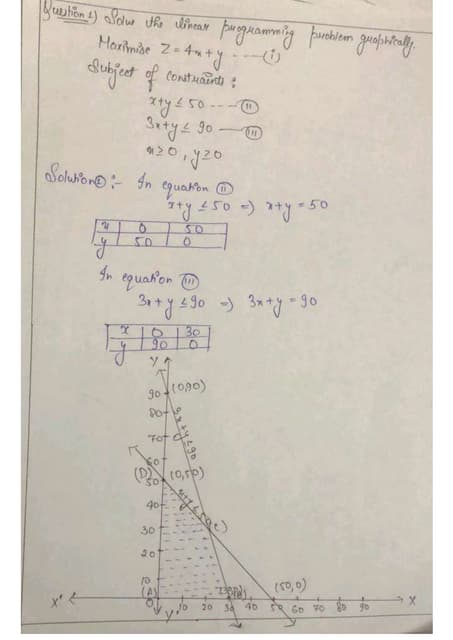 Question 1) Solve the linear programming problem graphically.
Maximise Z = 4x + y ----(i)
Subject of constraints :
x+y ≤ 50 --- (ii)
3x+y ≤ 90 — (iii)
x ≥ 0 , y ≥ 0
Solution :- In equation (ii)
x+y ≤ 50 => x+y = 50
x 0 50
y 50 0
In equation (iii)
3x + y ≤ 90 => 3x+y = 90
x 0 30
y 90 0
Y
90 (0,90)
80
70 3x+y≤90
60
(D) 50 (0,50)
40 x+y≤50 (C)
30
20
10
(A) (30,0) (B) (50,0)
X' 0 10 20 30 40 50 60 70 80 90 X
Y'